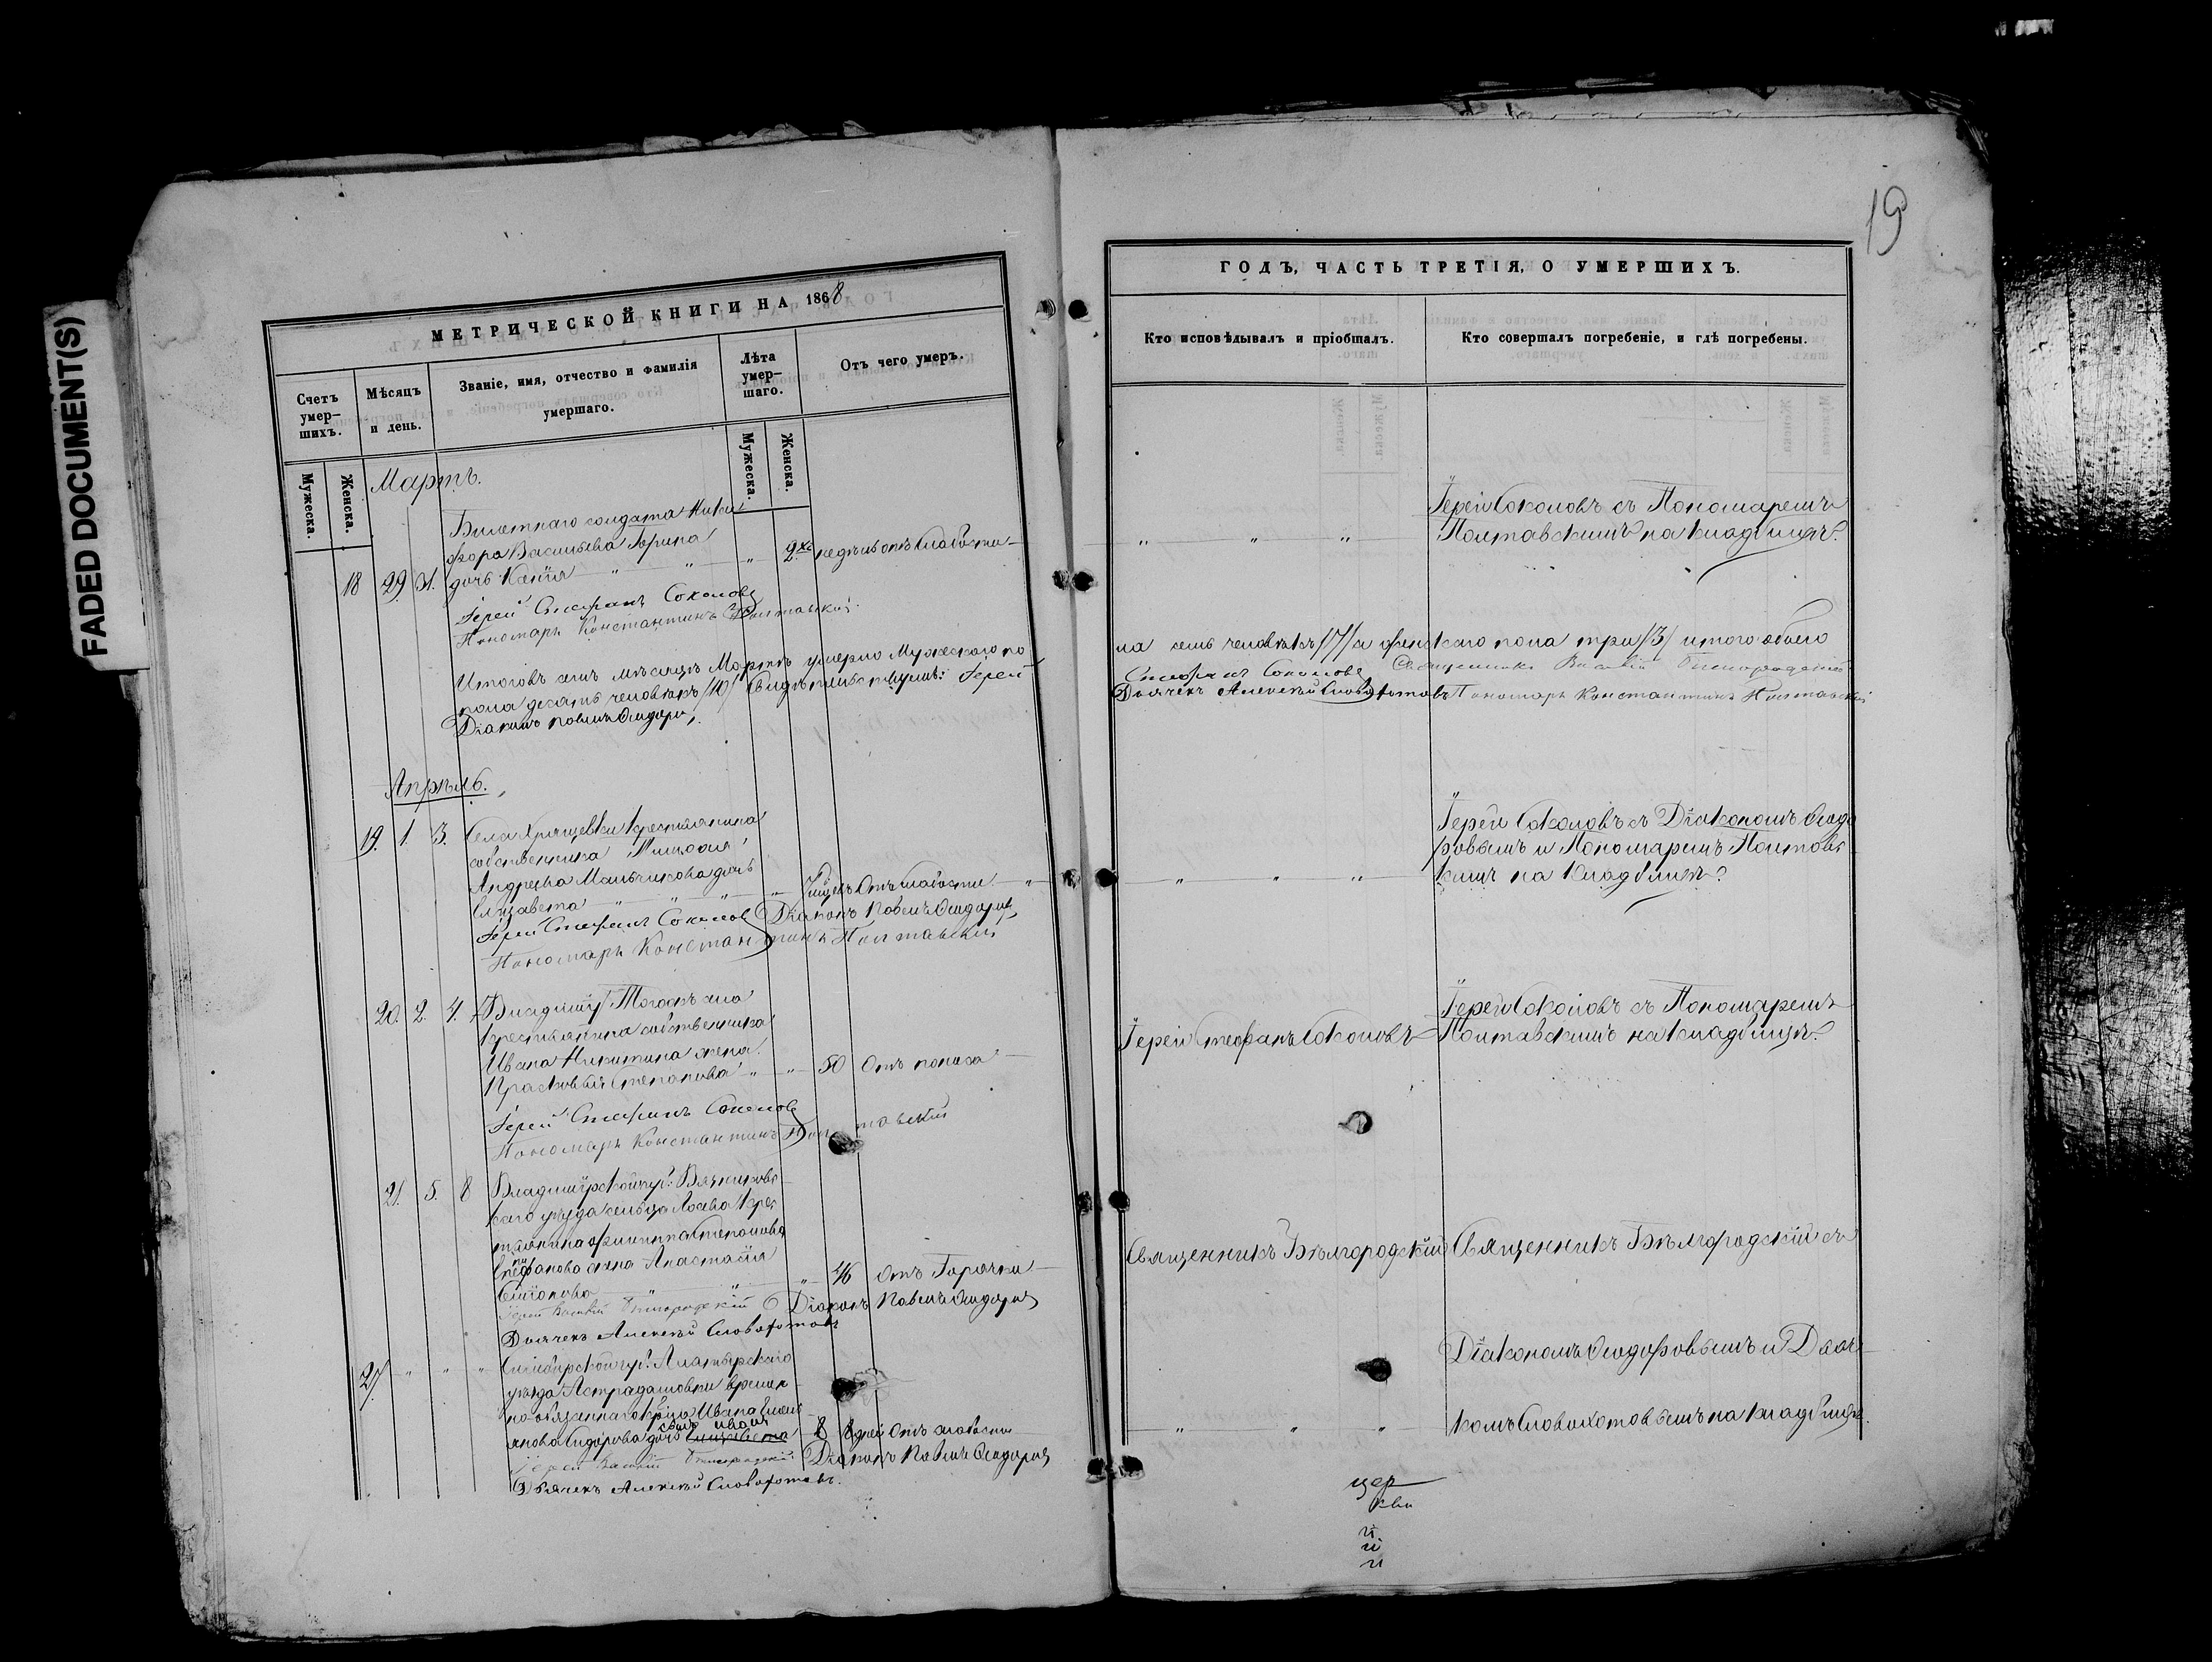 FADED DOCUMENT(S)
19
МЕТРИЧЕСКОЙ КНИГИ НА 1868
Счетъ умер-шихъ.
Мѣсяцъ и день.
Званіе, имя, отчество и фамилія умершаго.
Лѣта умер-шаго.
Отъ чего умеръ.
Мужеска.
Женска.
Мужеска.
Женска.
Мартъ.
Билетнаго солдата Ники
фора Васильева Горина
18 29 31. дочь Ксенія " " " 2хъ недѣль отъ слабости
Іерей Стефанъ Соколовъ
Пономарь Константинъ Полтавскій.
Итого въ семъ мѣсяцѣ Мартѣ умерло Мужескаго по
пола десять человѣкъ /10/ Свидѣтельствуемъ: Іерей
Діаконъ Павелъ Ѳеодоровъ
Апрѣль.
19. 1. 3. Села Хрящевки крестьянина
собственника Михаила
Андреева Мальчикова дочь
Елизавета " " " " Отъ слабости "
Іерей Стефанъ Соколовъ Діаконъ Павелъ Ѳеодоровъ
Пономарь Константинъ Полтавскій
20. 2. 4. Тогожъ села
крестьянина собственника
Ивана Никитина жена
Прасковья Степанова " " 50 Отъ поноса
Іерей Стефанъ Соколовъ
Пономарь Константинъ Полтавскій
21. 5. 8 Владимірской губ: Вязниковс
каго уѣзда сельца Лосева крес
тьянина Филиппа Степанова
Степанова жена Анастасія
" " 46 Отъ Горячки
Іерей Василій Бѣлгородскій Діаконъ Павелъ Ѳеодоровъ
Дьячекъ Алексѣй Словохотовъ
27. " " " Симбирской губ: Алатырскаго
уѣзда Астрадамовки времен
но-обязаннаго кр: Ивана
Сидорова дочь Елизавета 8 дней Отъ слабости
сынъ Иванъ
Іерей Василій Бѣлгородскій Діаконъ Павелъ Ѳеодоровъ
Дьячекъ Алексѣй Словохотовъ.
ГОДЪ, ЧАСТЬ ТРЕТІЯ, О УМЕРШИХЪ.
Кто исповѣдывалъ и пріобщалъ.
Кто совершалъ погребеніе, и гдѣ погребены.
Іерей Соколовъ съ Пономаремъ
" " " Полтавскимъ на кладбищѣ.
ла семь человѣкъ /7/ а женскаго пола три /3/ итого обоего
Стефанъ Соколовъ Священникъ Василій Бѣлгородскій
Дьячекъ Алексѣй Словохотовъ Пономарь Константинъ Полтавскій
Іерей Соколовъ съ Діакономъ Ѳеодо
ровымъ и Пономаремъ Полтавс
" " " кимъ на кладбищѣ.
Іерей Соколовъ съ Пономаремъ
Іерей Стефанъ Соколовъ Полтавскимъ на кладбищѣ.
Священникъ Бѣлгородскій Священникъ Бѣлгородскій съ
Діакономъ Ѳеодоровымъ и Дьяч
" " " комъ Словохотовымъ на кладбищѣ.
цер
кви
й
й
й